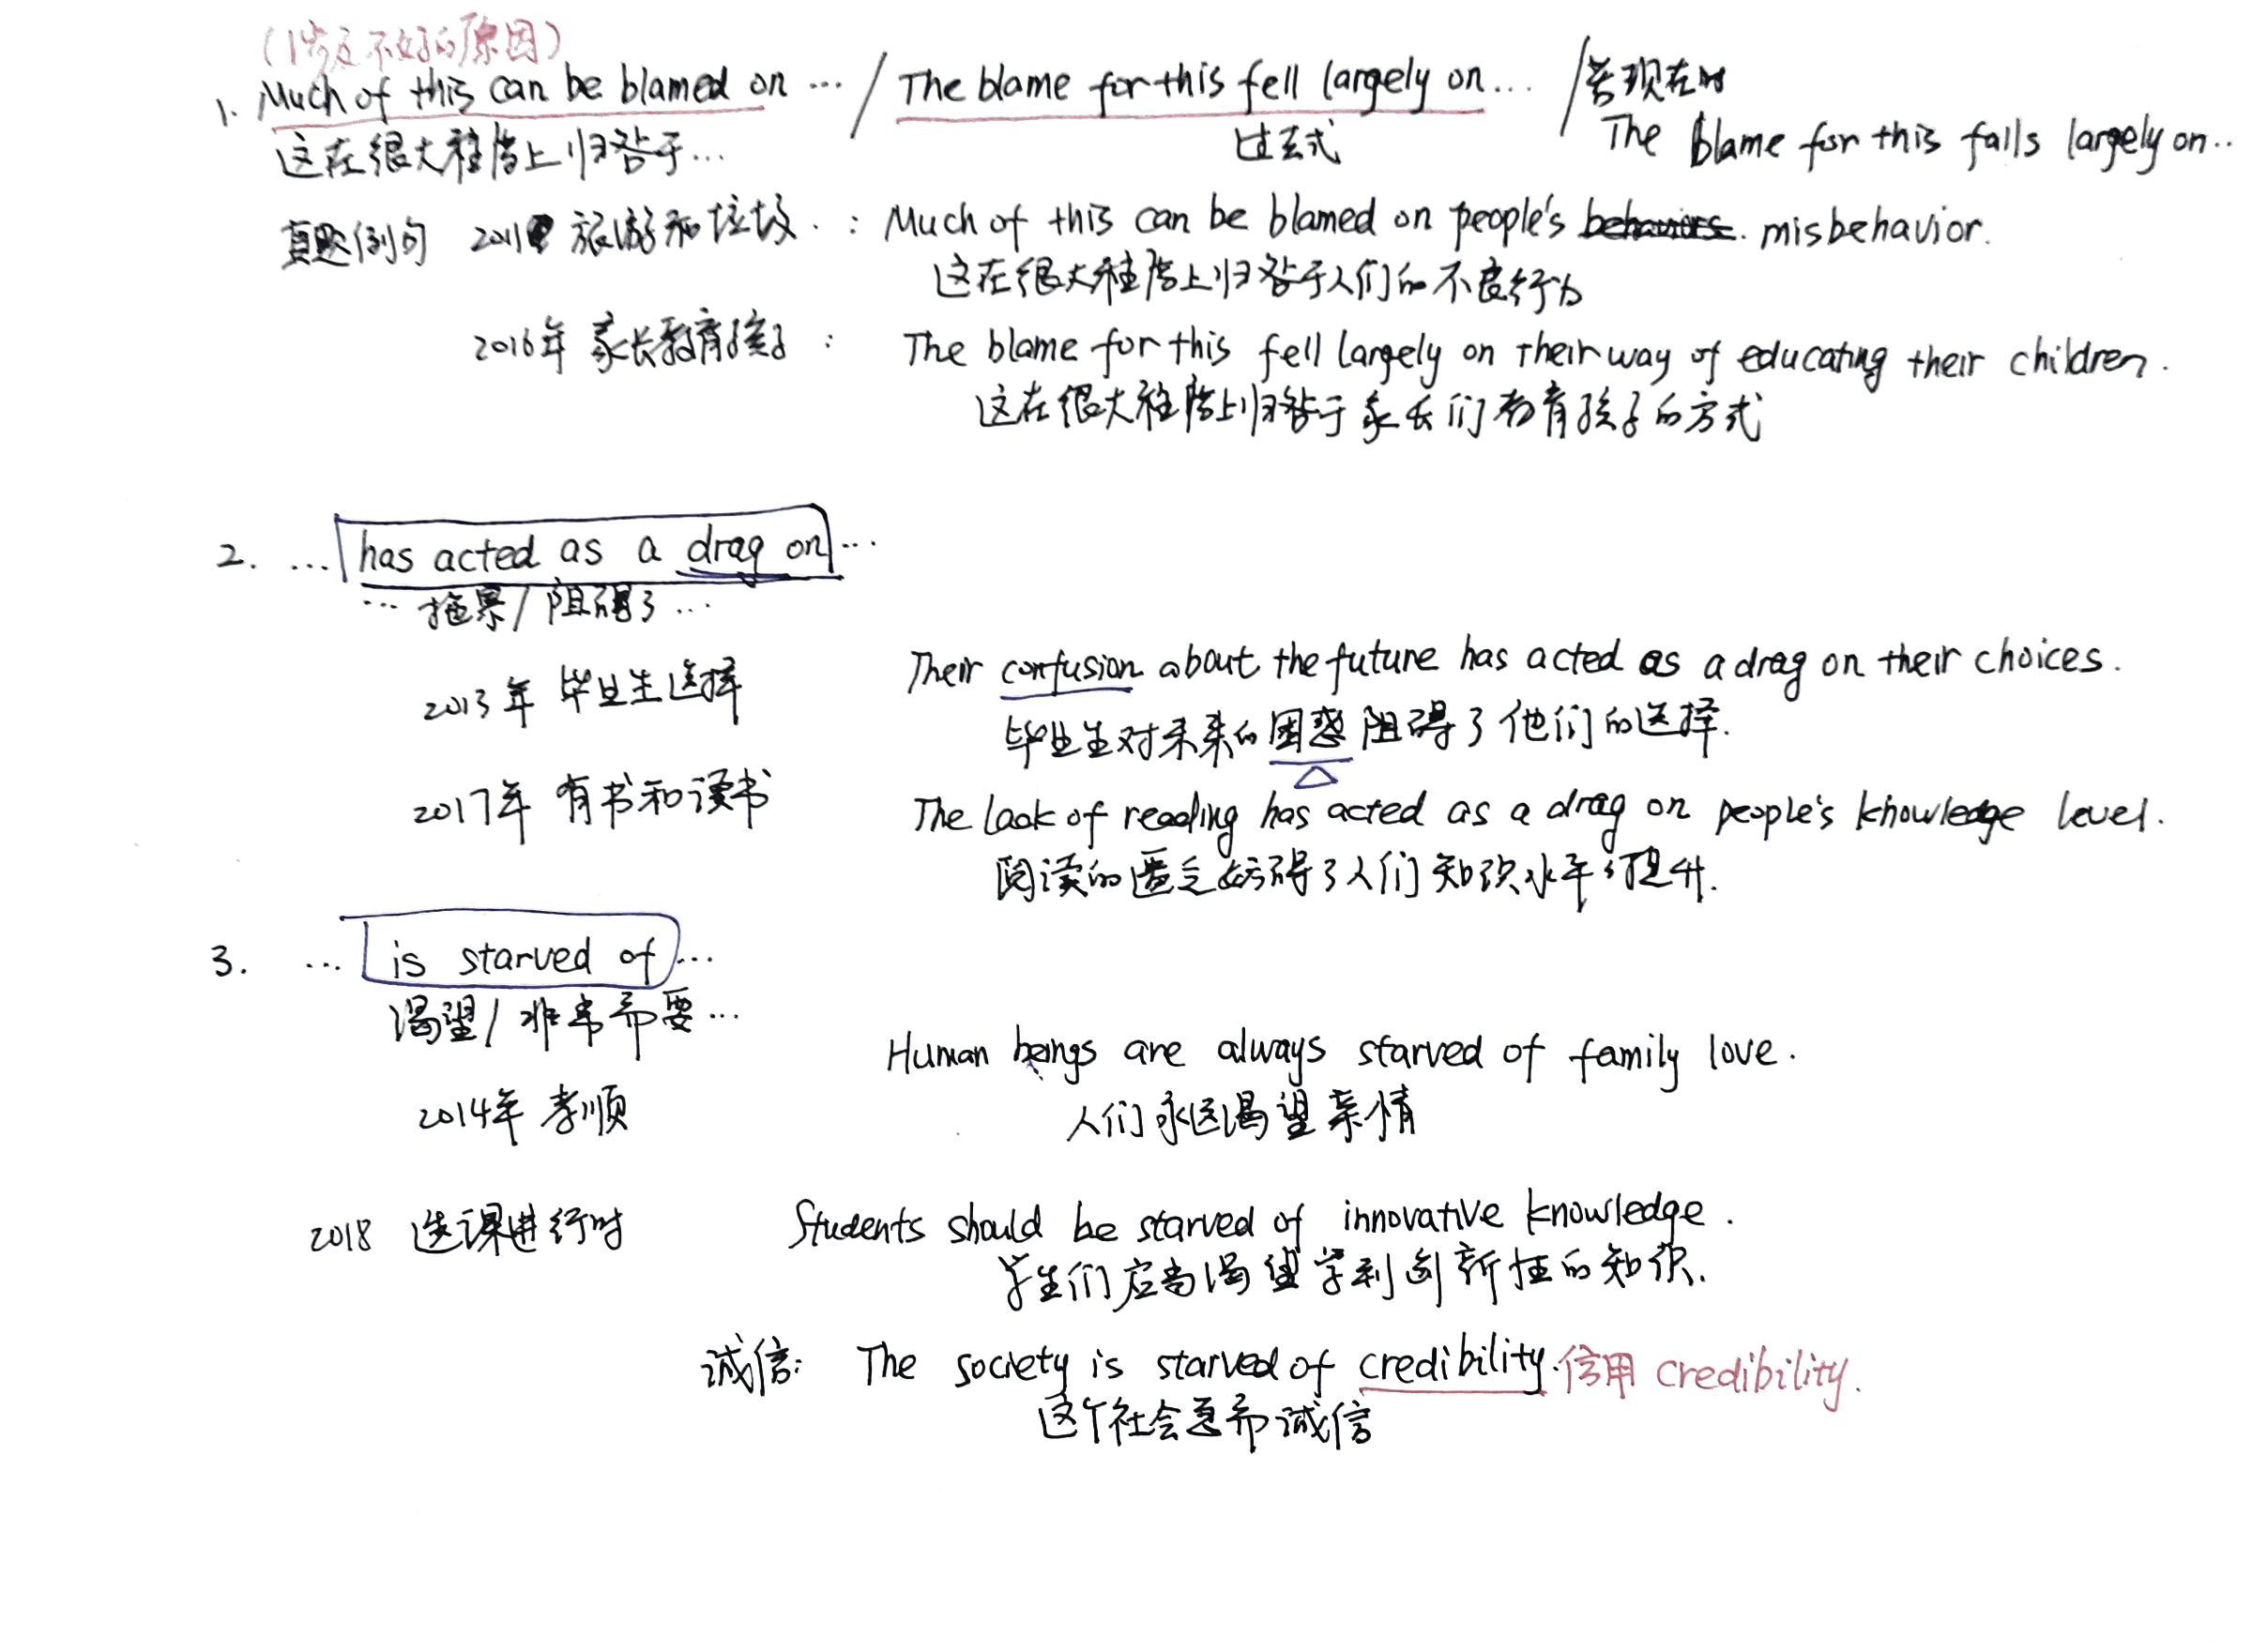 (1步这不好的原因)
1. Much of this can be blamed on ... / The blame for this fell largely on ... / 若现在时
这在很大程度上归咎于... 过去式 The blame for this falls largely on ..
真题例句 2011 旅游和垃圾 : Much of this can be blamed on people's behaviors. misbehavior.
这在很大程度上归咎于人们的不良行为
2016年 家长教育孩子 : The blame for this fell largely on their way of educating their children.
这在很大程度上归咎于家长们教育孩子的方式
2. ... has acted as a drag on ...
... 拖累/阻碍了 ...
Their confusion about the future has acted as a drag on their choices.
2013年 毕业生选择
毕业生对未来的困惑阻碍了他们的选择.
2017年 有书和读书
The lack of reading has acted as a drag on people's knowledge level.
阅读的匮乏妨碍了人们知识水平的提升.
3. ... is starved of ...
渴望/非常需要 ...
Human beings are always starved of family love.
2014年 孝顺
人们永远渴望亲情
2018 选课进行时 Students should be starved of innovative knowledge.
学生们应当渴望学到创新性的知识.
诚信: The society is starved of credibility. 信用 credibility.
这个社会急需诚信